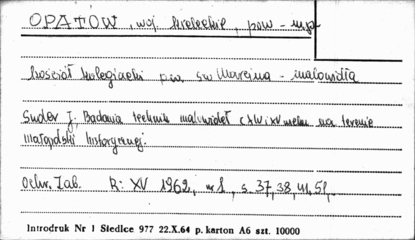 OPATÓW, woj. kieleckie, pow. - jw
kościół kolegiacki p.w. św. Marcina - malowidła
Snder J. Badania technik malowideł XIV i XV wieku na terenie
Małopolski historycznej.
Ochr. Zab. R: XV 1962, nr 1, s. 37, 38, 41, 51,
Introdruk Nr 1 Siedlce 977 22.X.64 p. karton A6 szt. 10000